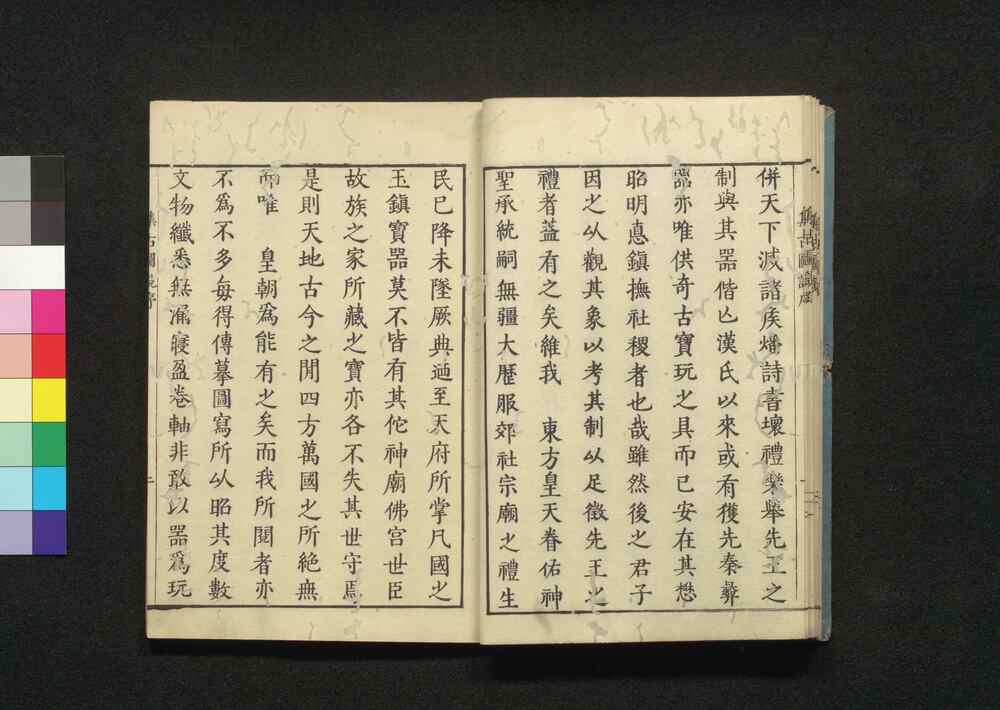 併天下滅諸矦燔詩書壞禮樂舉先王之
制與其器偕亾漢氏以來或有獲先秦彝
器亦唯供奇古寶玩之具而已安在其懋
昭明悳鎮撫社稷者也哉雖然後之君子
因之以觀其象以考其制以足徵先王之
禮者蓋有之矣維我　東方皇天眷佑神
聖承統嗣無疆大歷服郊社宗廟之禮生
民已降未墜厥典迺至天府所掌凡國之
玉鎮寶器莫不皆有其佗神廟佛宮世臣
故族之家所藏之寶亦各不失其世守焉
是則天地古今之閒四方萬國之所絶無
而唯　皇朝為能有之矣而我所閱者亦
不為不多每得傳摹圖寫所以昭其度數
文物纖悉無漏寖盈卷軸非敢以器爲玩